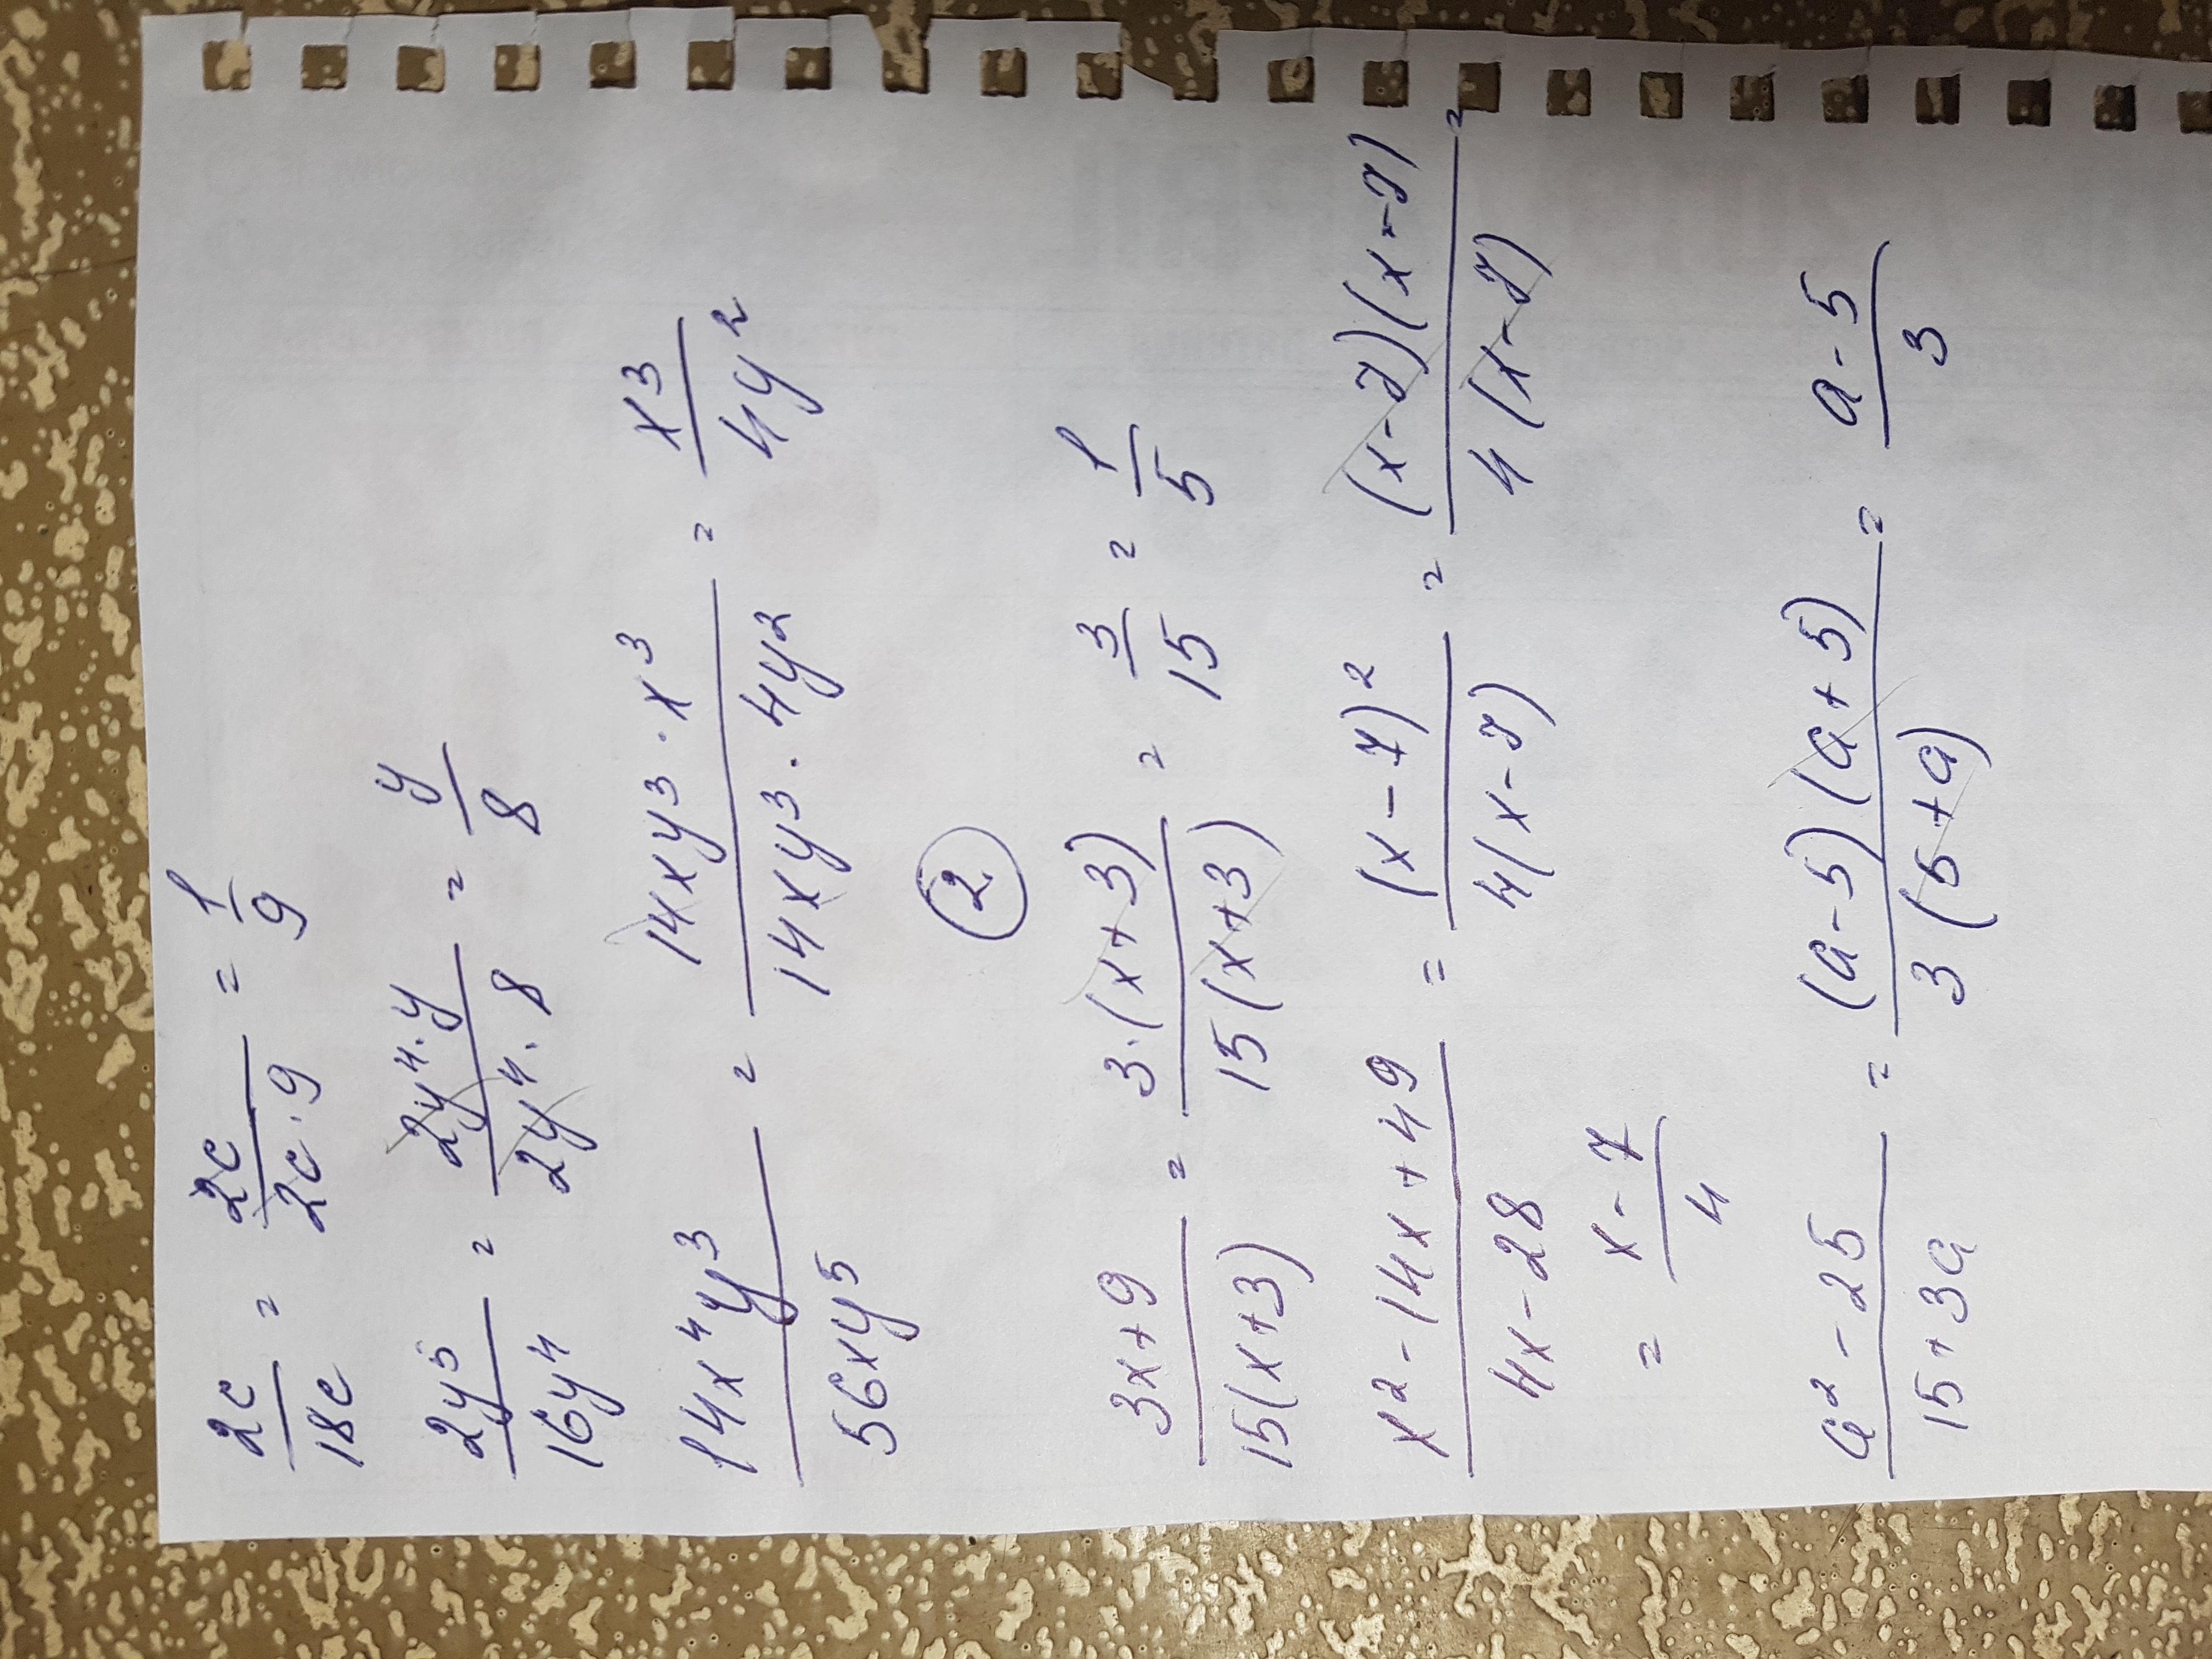 2c/18c = 2c/2c·9 = 1/9
2y⁵/16y⁴ = 2y⁴·y/2y⁴·8 = y/8
14x⁴y³/56xy⁵ = 14xy³·x³/14xy³·4y² = x³/4y²
2.
3x+9/15(x+3) = 3·(x+3)/15(x+3) = 3/15 = 1/5
x²-14x+49/4x-28 = (x-7)²/4(x-7) = (x-7)(x-7)/4(x-7) =
= x-7/4
a²-25/15+3a = (a-5)(a+5)/3(5+a) = a-5/3